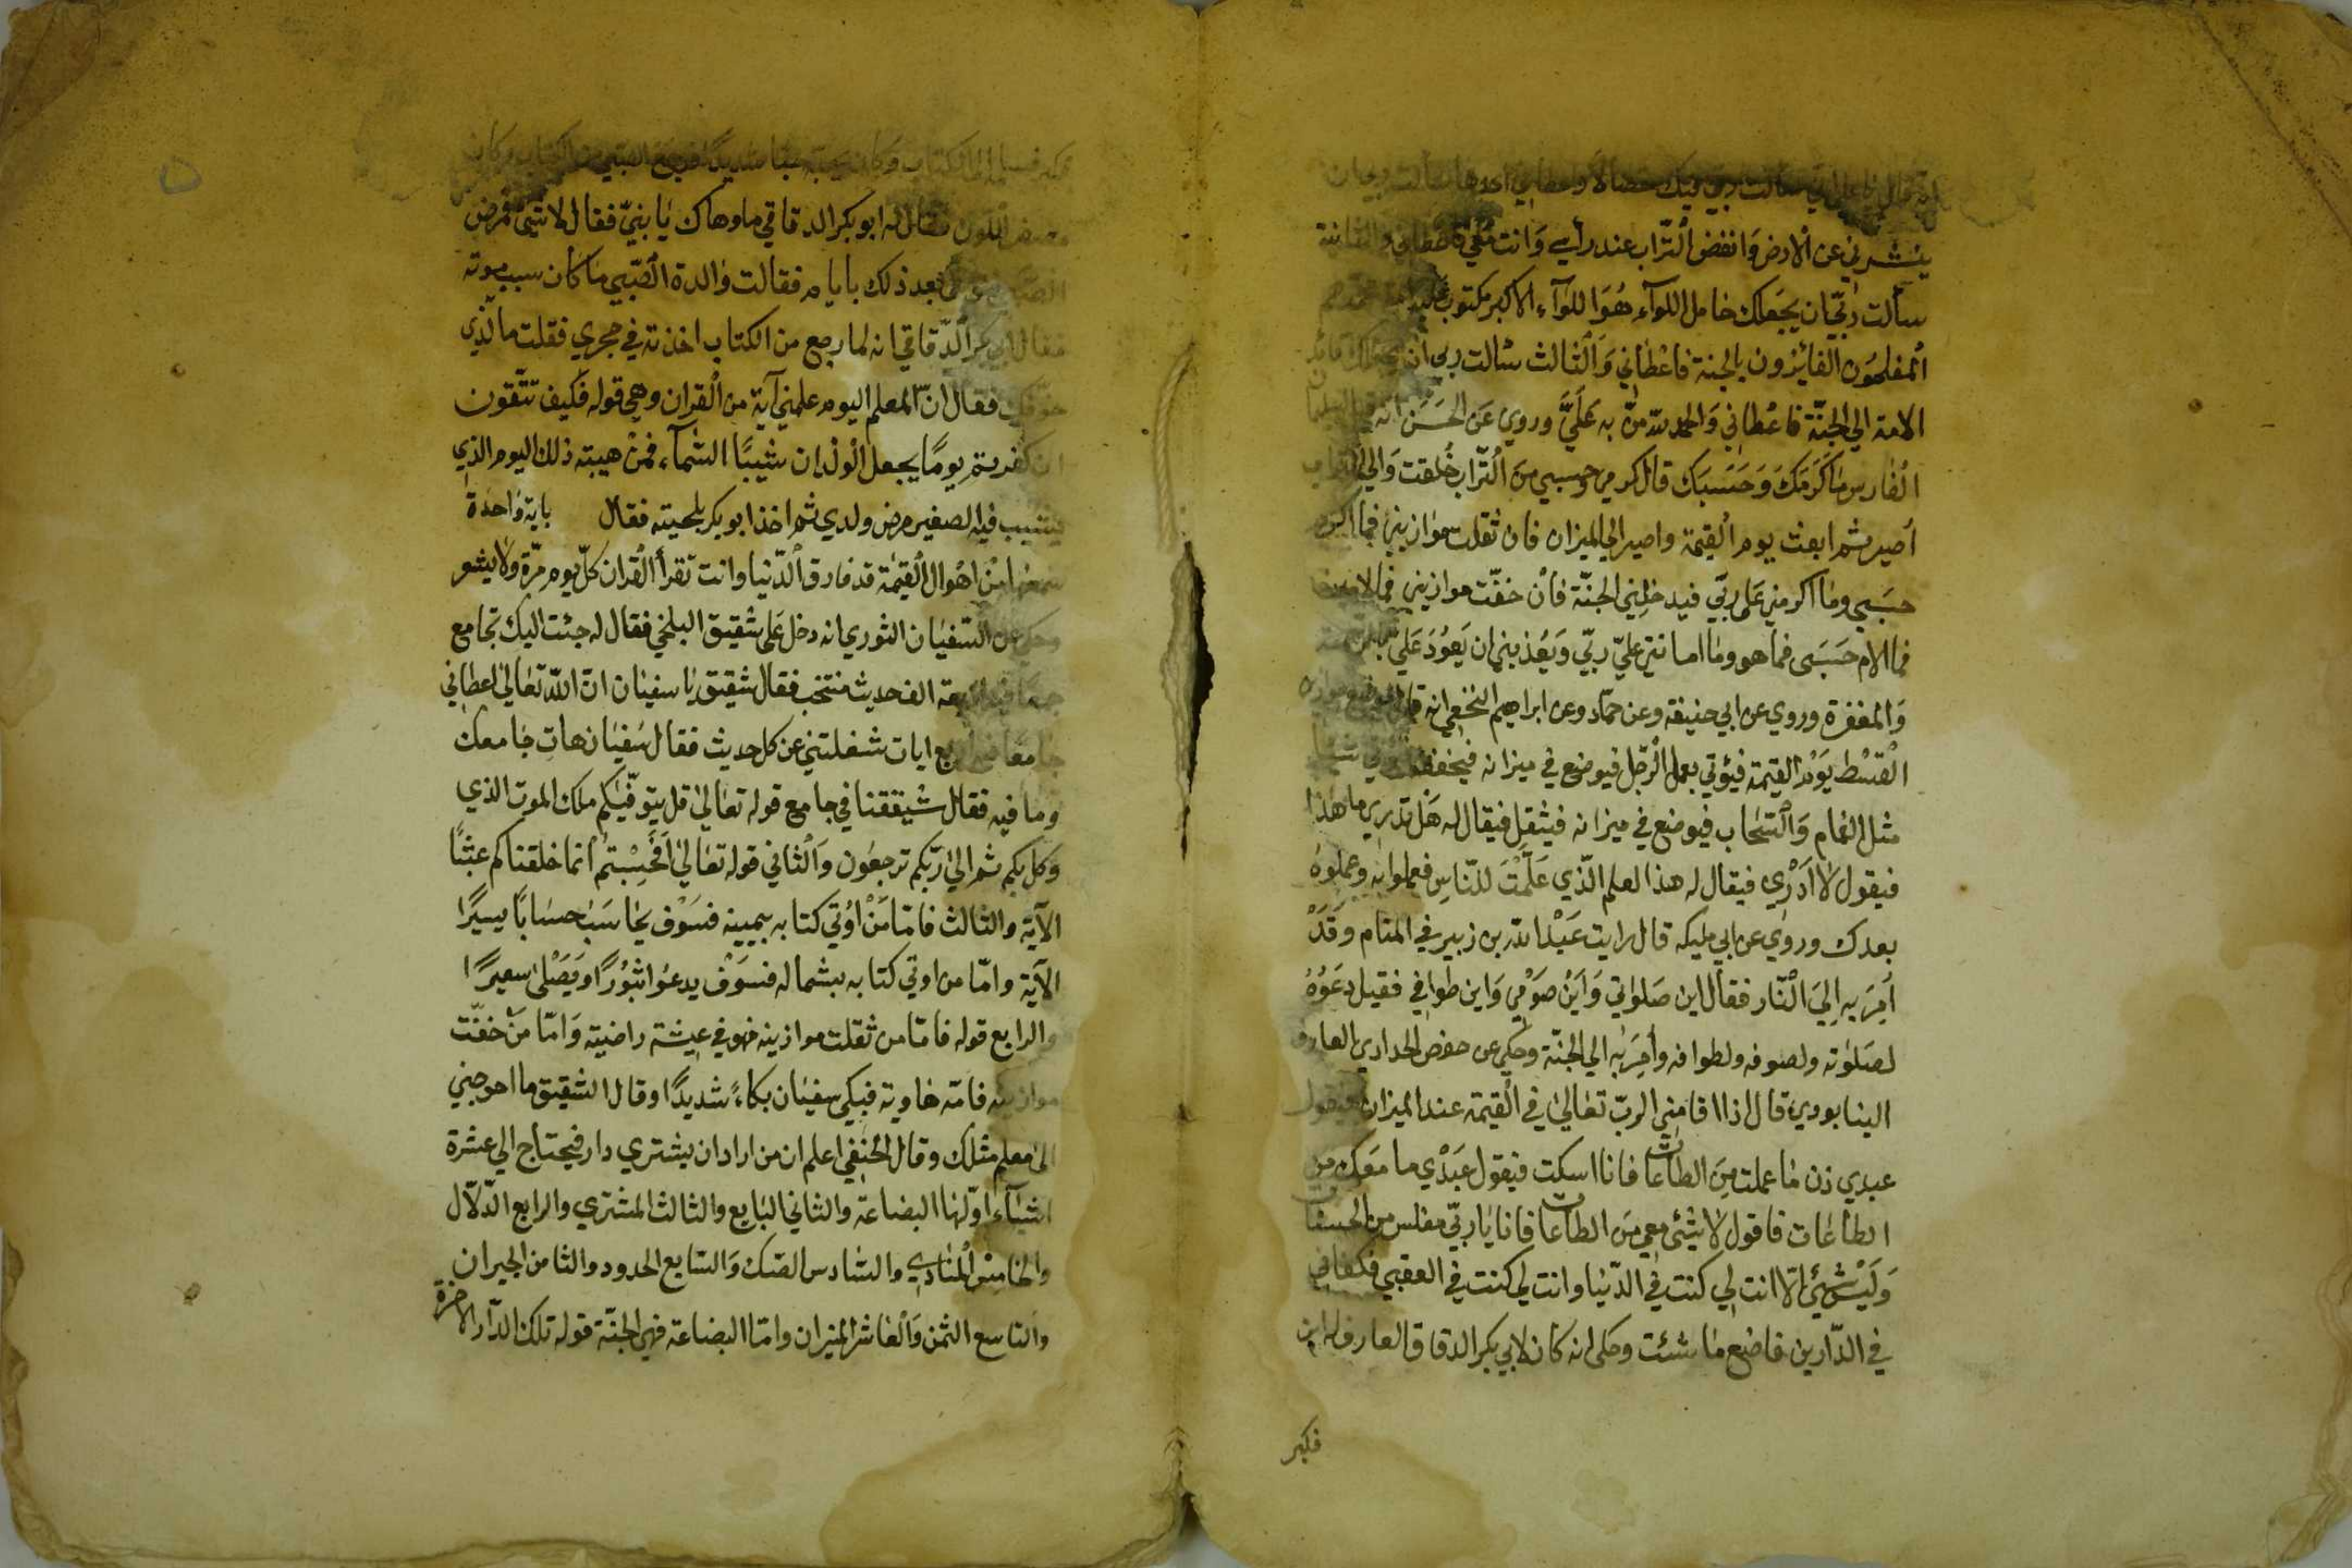 سألت ربي فيك خصالا
ينشرني عن الأرض وانفض التّراب عند رأسي وانت معي فاعطاني والثانية
سألت ربّي ان يجعلك حامل اللوآء هُوَ اللوَآء الاكبر مكتوب عليه
المفلحُون الفائزون بالجنة فاعْطاني وَالْثالث سالت ربى ان يجعلك قائد
الامة الي الجنّة فاعْطاني وَالحمد للّه منّ به عَلَيَّ وروي عَن الحَسَن انه
الفارس مَا كَرَمَكَ وَحَسَبَك قال كرمي وحسبي من التّراب خُلقت وَالي التراب
أصير ثم ابعث يوم القيمة واصير الي الميزان فان ثقلت موازيني فما اكرم
حسَبي وما اكرمني عَلى ربّي فيدخلِني الجنّة فأن خفّت موازيني فما الام
فما الام حَسَبَى فما هو وما اهانني عليّ ربّي وَيَعُذبني ان يَعُودَ عَليّ بالرحمة
وَالمغفرة وروي عن ابي حنيفه وعن حمّاد وعن ابراهيم النخعي انه قال
القسْط يَوْم القيمة فيؤتي بعمل الرّجل فيوضع في ميزانه فيخفف
مثل الغمام وَالسّحاب فيوضع في ميزانه فيثقل فيقال له هَل تدري ما هذا
فيقول لا اَدْرِي فيقال له هذا لعلم الّذي عَلّمْتَ للنّاس فعملوا به وعملوهُ
بعدك وروي عن ابي مليكه قال رايت عَبْد الله بن زبير في المنام وقَدْ
اُمِرَ به الِيَ النّار فقال اين صَلواتي وَاَيْنَ صَوْمي وَاين طوافي فقيل دعَوُهُ
لصَلوته ولصومه ولطوافه واُمِرَ به الي الجنّة وحكي عن حفص الحدادي العارف
الينابودي قال اذا اقامني الربّ تعالي في القيمة عند الميزان فيقول
عبدي زن ما عملت مِنَ الطاعات فانا اسكت فيقول عَبَدْي ما مَعَك من
الطاعات فاقول لا شيْئ معي مَن الطاعات فانا يا ربّي مفلس من الحسنات
وَلَيْسَ شئ الّا انت لي كنت في الدّنيا وانت لي كنت في العقبي فكفاني
في الدّارين فاصنع ما شئت وحكى انه كان لابي بكر الدقاق العارف له ابن
فكبر
فكبر فسلمه الي الكتاب وكان يحبه حبّا شديدًا فرجع الصبي من الكتاب وكان
مصفر اللون فقال له ابو بكر الدقاقي ما دهاك يا بنيّ فقال لا شئ فمرض
الصّبي بعد ذلك بايام فقالت والدة الصّبي ما كان سبب موته
فقال ابي بكر الدّقاقي انه لما رجع من الكتاب اخذته في حجري فقلت ما الّذي
خوّفك فقال انّ المعلم اليوم علمني آية من القران وهي قوله فكيف تتّقون
ان كفرتم يومًا يجعل الْولْدان شيبًا السّمآء فمن هيبته ذلك اليوم الذي
يشيب فيه الصغير مرض ولدي ثم اخذ ابو بكر بلحيته فقال باية واحدة
سمعها من اهْوال القيمَة قد فارق الّدنيا وانت تقرأ القران كلّ يوم مرّة ولا يشو
وحكي عن السّفيان الثوري انه دخل عَلى شقيق البلخي فقال له جئت اليك تجامع
جمعَا فيه اربعة الف حديث منتخب فقال شقيق يا سفيان انّ اللّه تعالى اعطاني
جامعَا فيه اربع ايات شغلتني عن كل حديث فقال سُفيان هات جامعك
وما فيه فقال شقيقنا في جامع قوله تعالي قل يتوفّيكم ملك الموت الذي
وكل بكم ثم الي ربّكم ترجعون وَالْثاني قوله تعالي اَفَحَسِبْتم انما خلقناكم عبثًا
الآية والثالث فامّا مَنْ اُوُتي كتابه بيمينه فسَوْف يحَاسَب حسَابًا يسيرًا
الآية وامّا من اوتي كتابه بشماله فسَوَفْ يدعُوا ثبُورًا ويَصَلْى سعيرًا
والرابع قوله فامّا من ثقلت موازينه فهو في عيشة راضيَة وَامّا مَنْ خفّت
موازينه فامّه هاوية فبكى سفيَان بكاءً شديدًا وقال الشقيق ما احوجني
الى معلم مثلك وقال الحنفي اعلم ان من اراد ان يشتري دار فيحتاج الي عشرة
اشيآء اوّلها البضاعَة والثاني البَايع والثالث المشتري والرابع الدّلال
والخامس المُنادي والسّادس الصّك وَالسّابع الحدود والثامن الجيران
والتاسع الثمن وَالْعَاشر الميزان وامّا البضاعة فهي الجنّة قوله تلك الدّار الاخرة